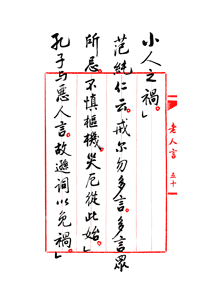 小人之禍。」
范純仁云。戒尔勿多言。多言眾
所忌。不慎樞機。災厄從此始。」
孔子与惡人言。故遜詞以免禍。」
老人言 五十